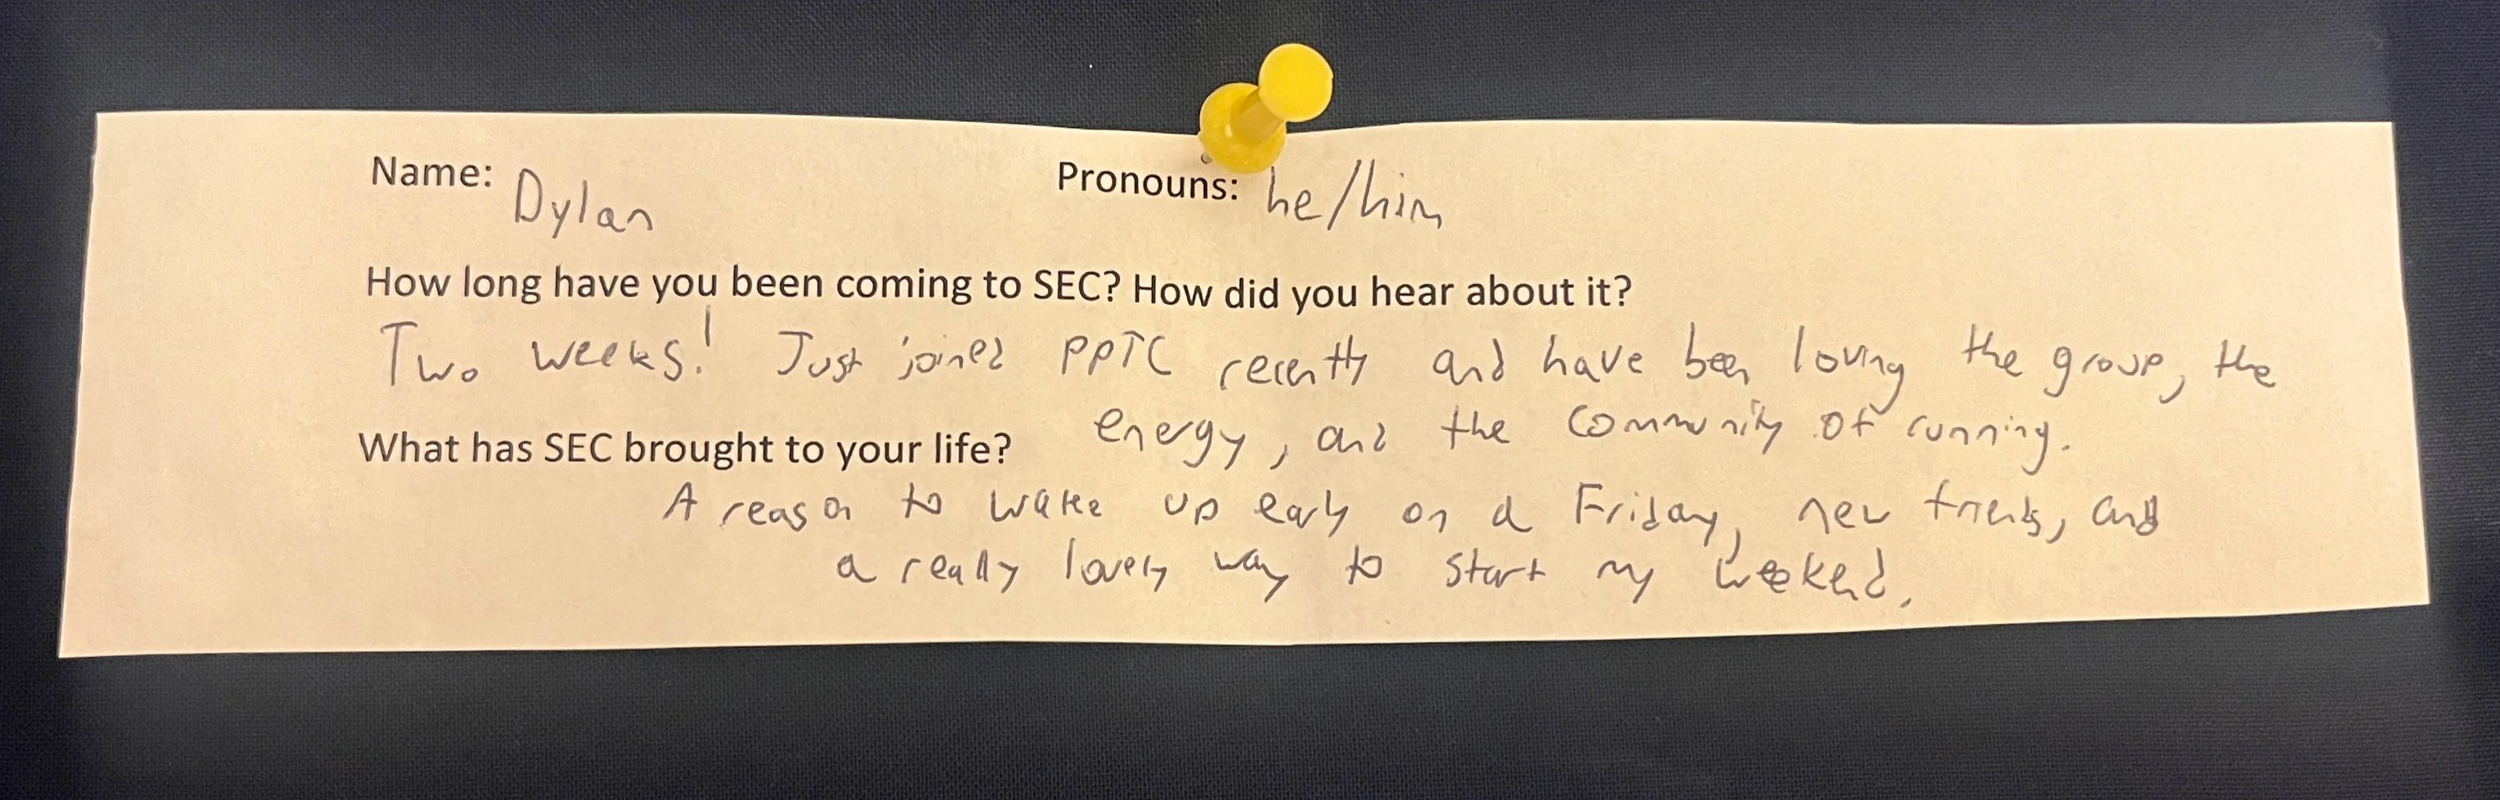 Name: Dylan Pronouns: he/him
How long have you been coming to SEC? How did you hear about it?
Two weeks! Just joined PPTC recently and have been loving the group, the
energy, and the community of running.
What has SEC brought to your life?
A reason to wake up early on a Friday, new friends, and
a really lovely way to start my weekend.